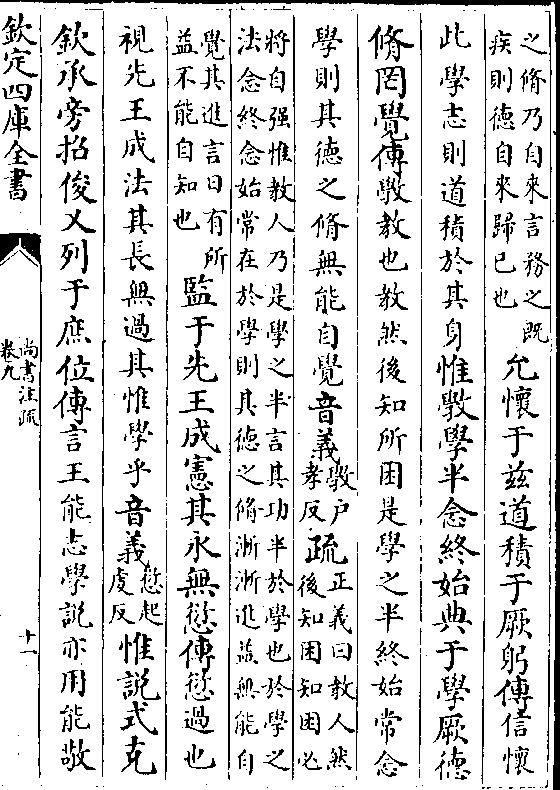 之脩乃自來言務之既
疾則德自來歸已也
允懷于兹道積于厥躬傳信懷
此學志則道積於其身惟斆學半念終始典于學厥德
脩罔覺傳斆教也教然後知所困是學之半終始常念
學則其德之脩無能自覺音義斆户
孝反
疏正義曰教人然
後知困知困必
將自强惟教人乃是學之半言其功半於學也於學之
法念終念始常在於學則其德之脩漸漸進益無能自
覺其進言日有所
益不能自知也
監于先王成憲其永無愆傳愆過也
視先王成法其長無過其惟學乎音義愆起
虔反
惟說式克
欽承旁招俊乂列于庶位傳言王能志學說亦用能敬
欽定四庫全書
尚書注疏
卷九
十一